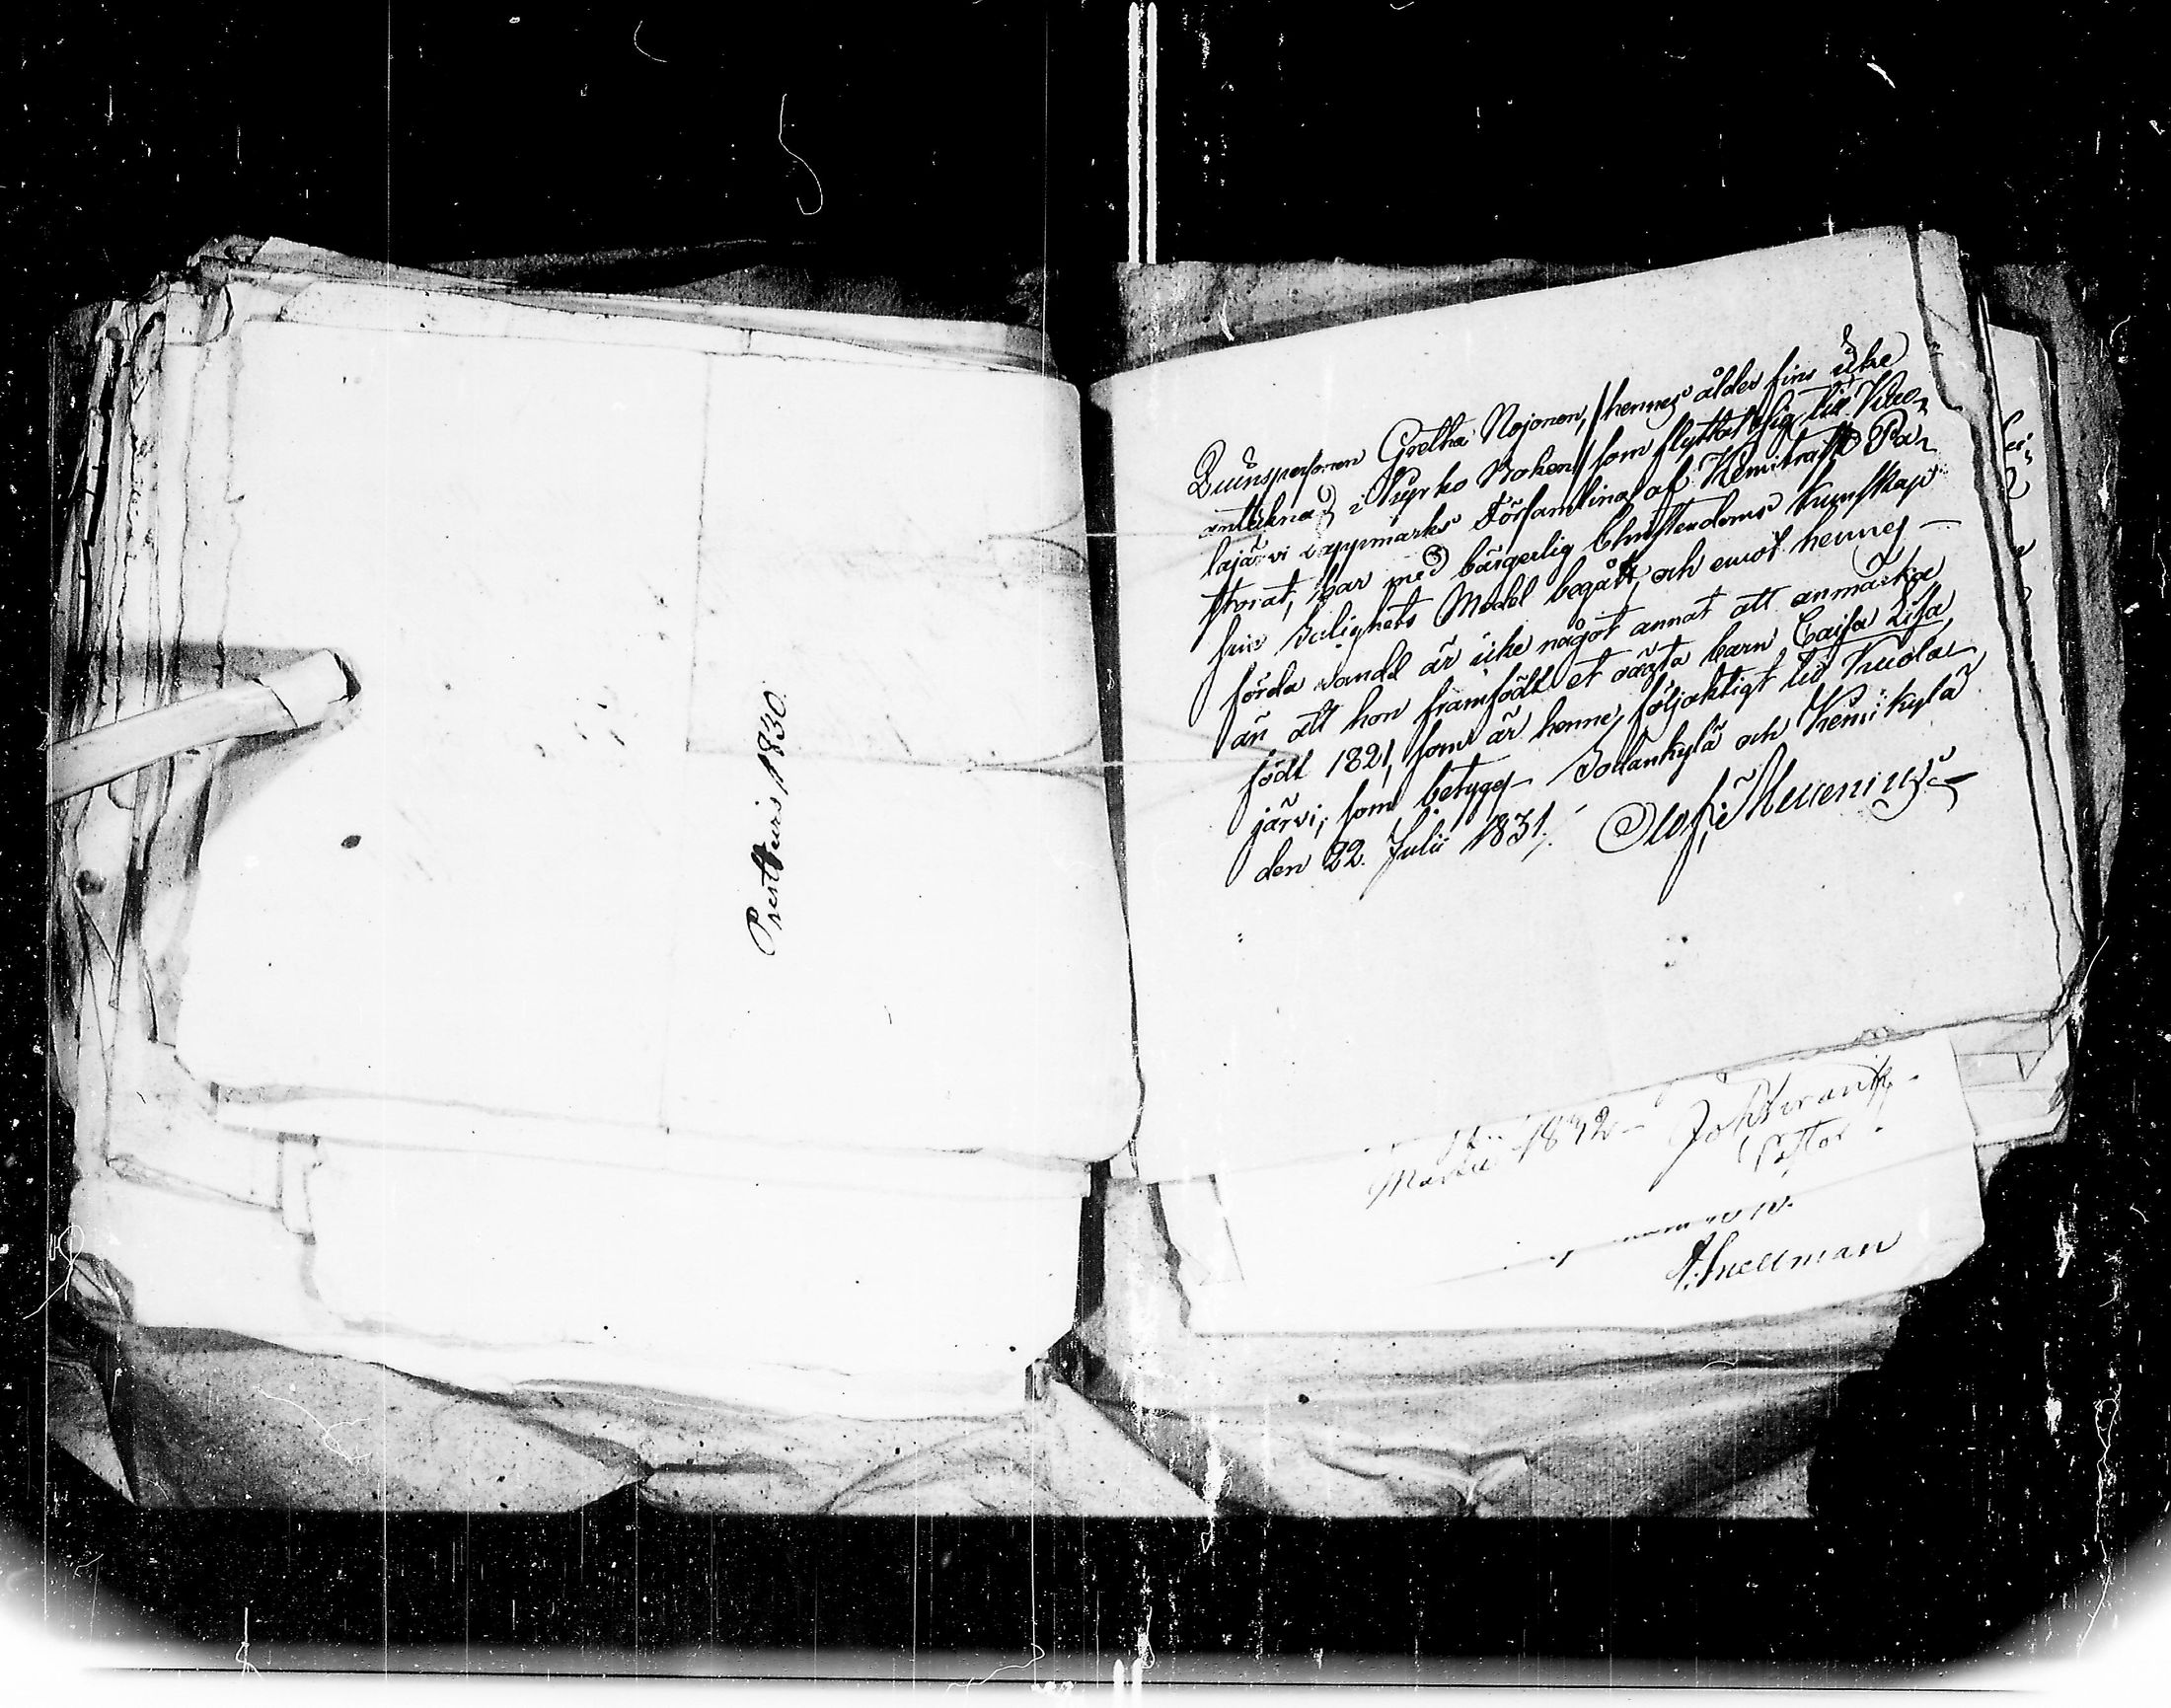 Prestbevis 1830.
Qvinspersonen Gretha Nojonen, /:hennes ålder fins icke
antekna͠d i Kyrko Boken:/ som flyttat sig till Kuo-
lajärvi Lappmarks Församling af Kemiträsk Pa-
storat, har med bärgerlig Christendoms Kunskap
sine Salighets Medel begått, och emot hennes —
förda vandel är icke något annat att anmärka
än att hon framfödt et oäkta barn Caisa Lisa,
födt 1821, som är henne följaktigt till Kuola-
järvi; som betyges — Sodankylä och Kemikylä
den 22. Julii 1831.
Martii 1832 —
Pastor
Snellman